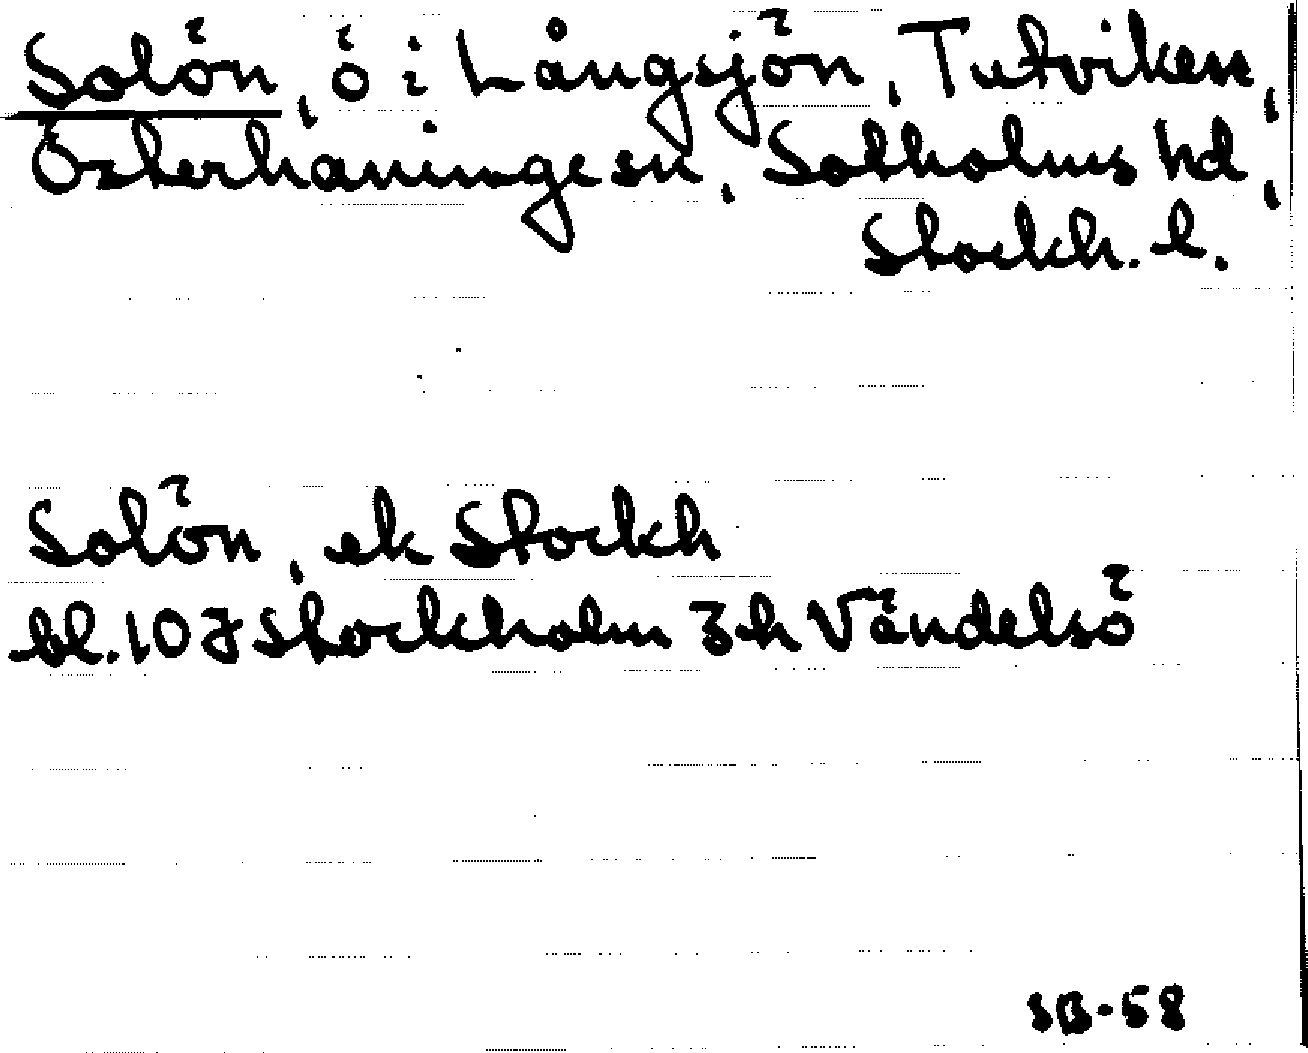 Solön, ö i Långsjön, Tutviken,
Österhaninge sn, Sotholms hd,
Stockh. l.
Solön, ek Stockh
bl. 10 J Stockholm 3 h Vändelsö
SB-58